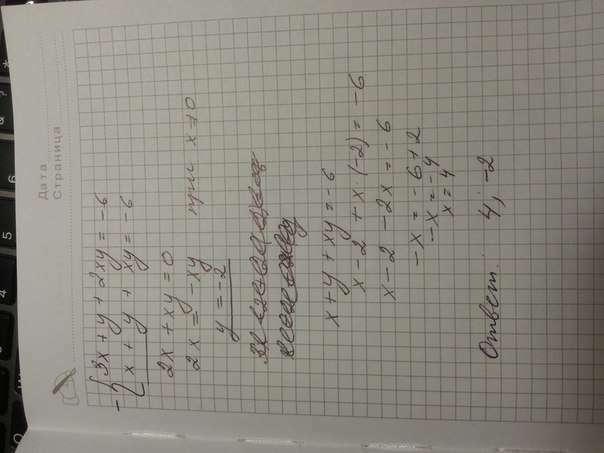 Дата
Страница
3x + y + 2xy = -6
x + y + xy = -6
2x + xy = 0
2x = -xy при x≠0
y = -2
x + y + xy = -6
x - 2 + x·(-2) = -6
x - 2 - 2x = -6
-x = -6+2
-x = -4
x = 4
Ответ: 4; -2